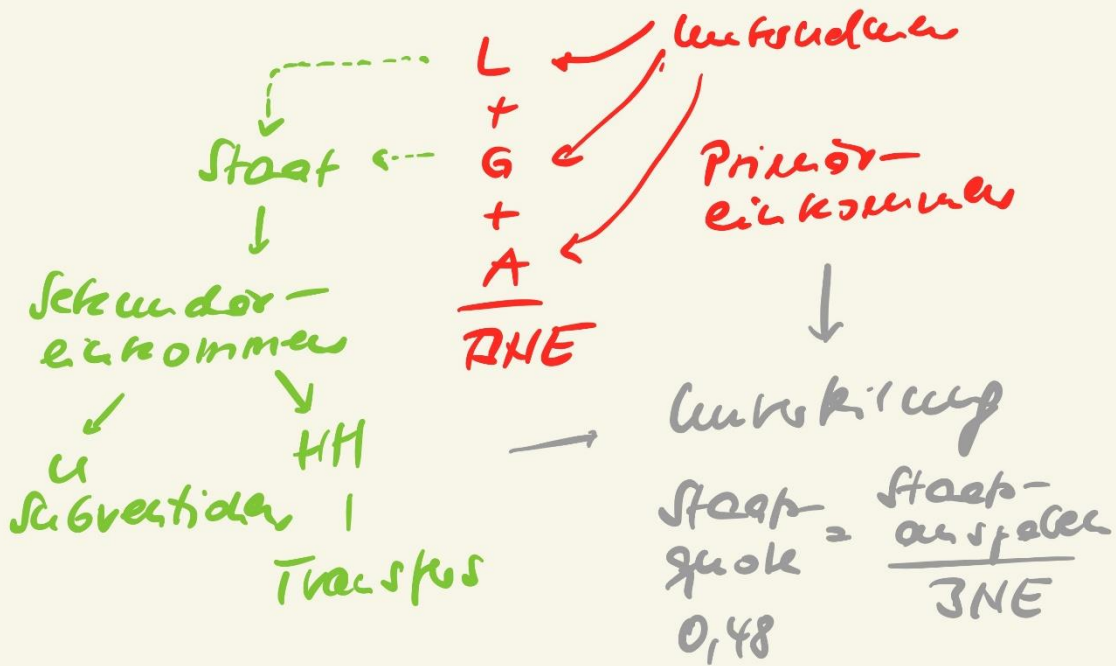 Unternehmen
L
+
G
+
A
BNE
Primär-
einkommen
Staat
Sekundär-
einkommen
U
Subventionen
HH
Transfers
Umverteilung
Staats-
quote
=
Staats-
ausgaben
BNE
0,48